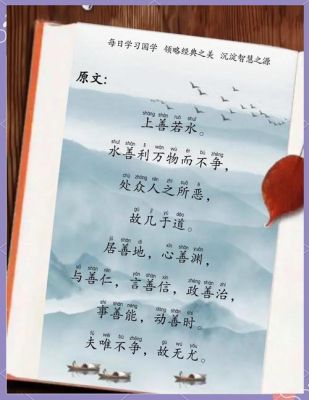 每日学习国学 领略经典之美 沉淀智慧之源
原文：
shàng shàn ruò shuǐ
上善若水。
shuǐ shàn lì wàn wù ér bù zhēng
水善利万物而不争，
zhòng rén zhī suǒ
处众人之所恶，
gù jī yú dào
故几于道。
jū shàn dì xīn shàn yuān
居善地，心善渊，
yǔ shàn rén yán shàn xìn zhèng shàn zhì
与善仁，言善信，政善治，
shì shàn néng dòng shàn shí
事善能，动善时。
fū wéi bù zhēng gù wú yóu
夫唯不争，故无尤。